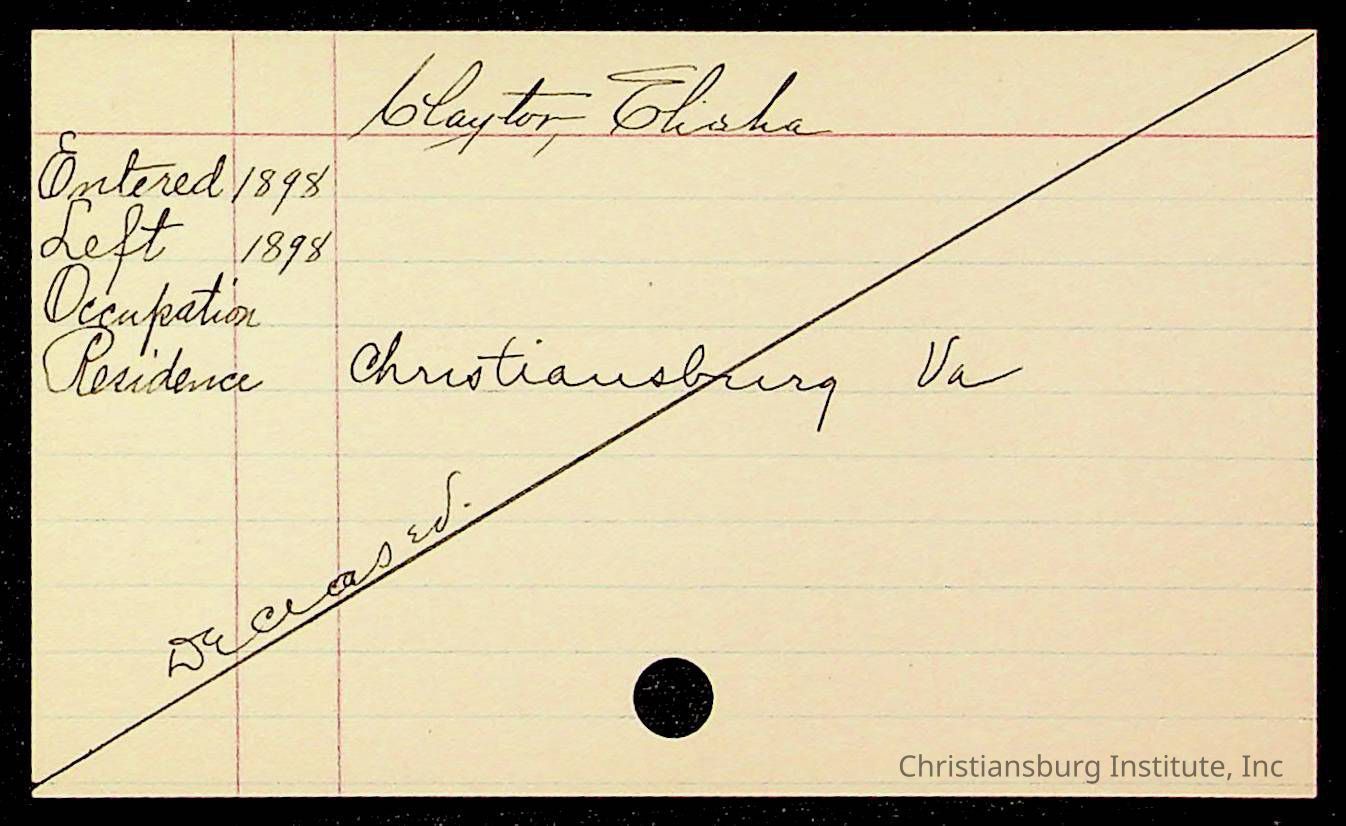 Claytor, Elisha
Entered 1898
Left 1898
Occupation
Residence Christiansburg Va
Deceased.
Christiansburg Institute, Inc